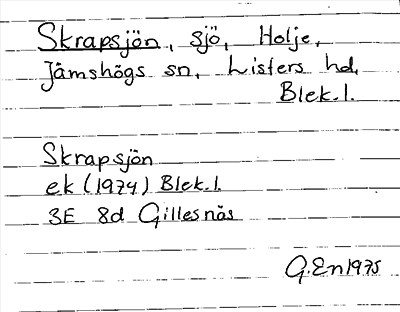 Skrapsjön, sjö, Holje,
Jämshögs sn, Listers hd,
Blek. l.
Skrapsjön
ek (1974) Blek. l.
3E 8d Gillesnäs
G.En 1975